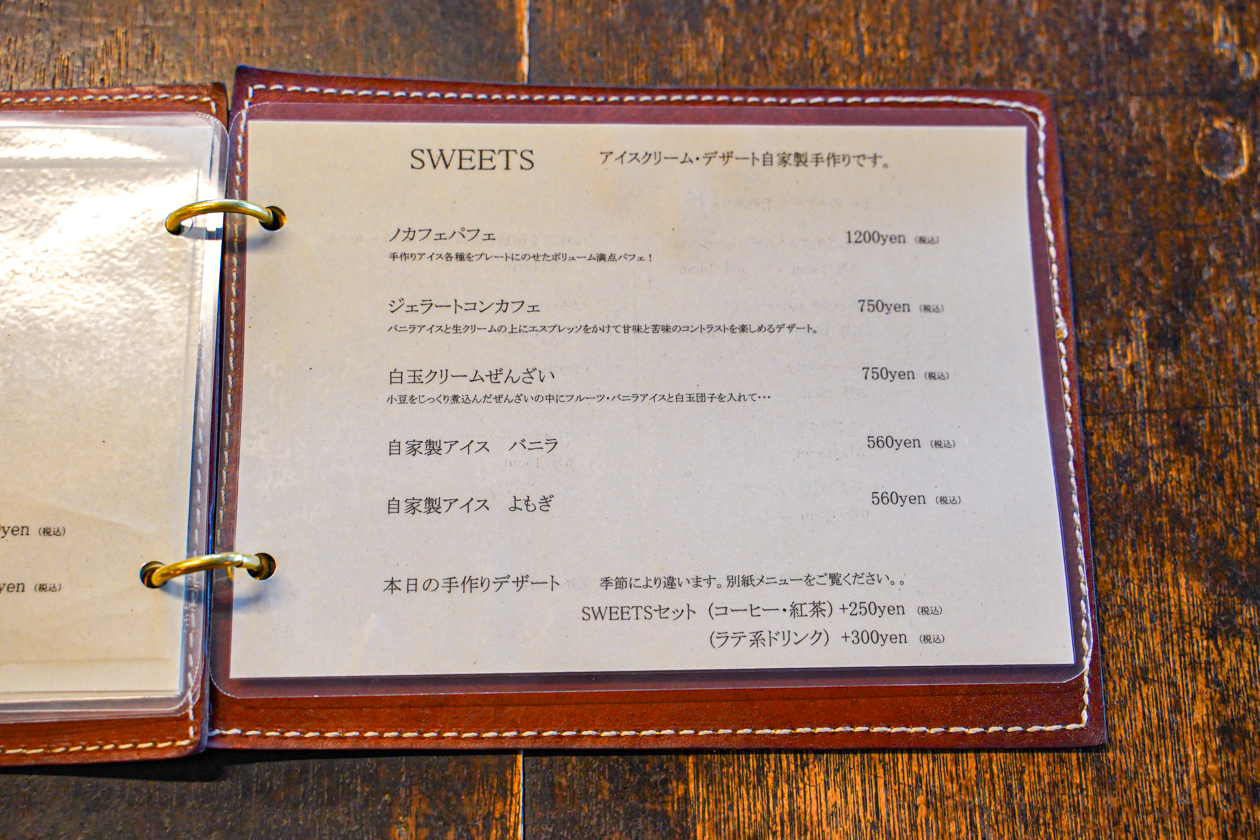 SWEETS アイスクリーム・デザート自家製手作りです。
ノカフェパフェ 1200yen (税込)
手作りアイス各種をプレートにのせたボリューム満点パフェ！
ジェラートコンカフェ 750yen (税込)
バニラアイスと生クリームの上にエスプレッソをかけて甘味と苦味のコントラストを楽しめるデザート。
白玉クリームぜんざい 750yen (税込)
小豆をじっくり煮込んだぜんざいの中にフルーツ・バニラアイスと白玉団子を入れて・・・
自家製アイス バニラ 560yen (税込)
自家製アイス よもぎ 560yen (税込)
本日の手作りデザート 季節により違います。別紙メニューをご覧ください。。
SWEETSセット (コーヒー・紅茶) +250yen (税込)
(ラテ系ドリンク) +300yen (税込)
yen (税込)
yen (税込)